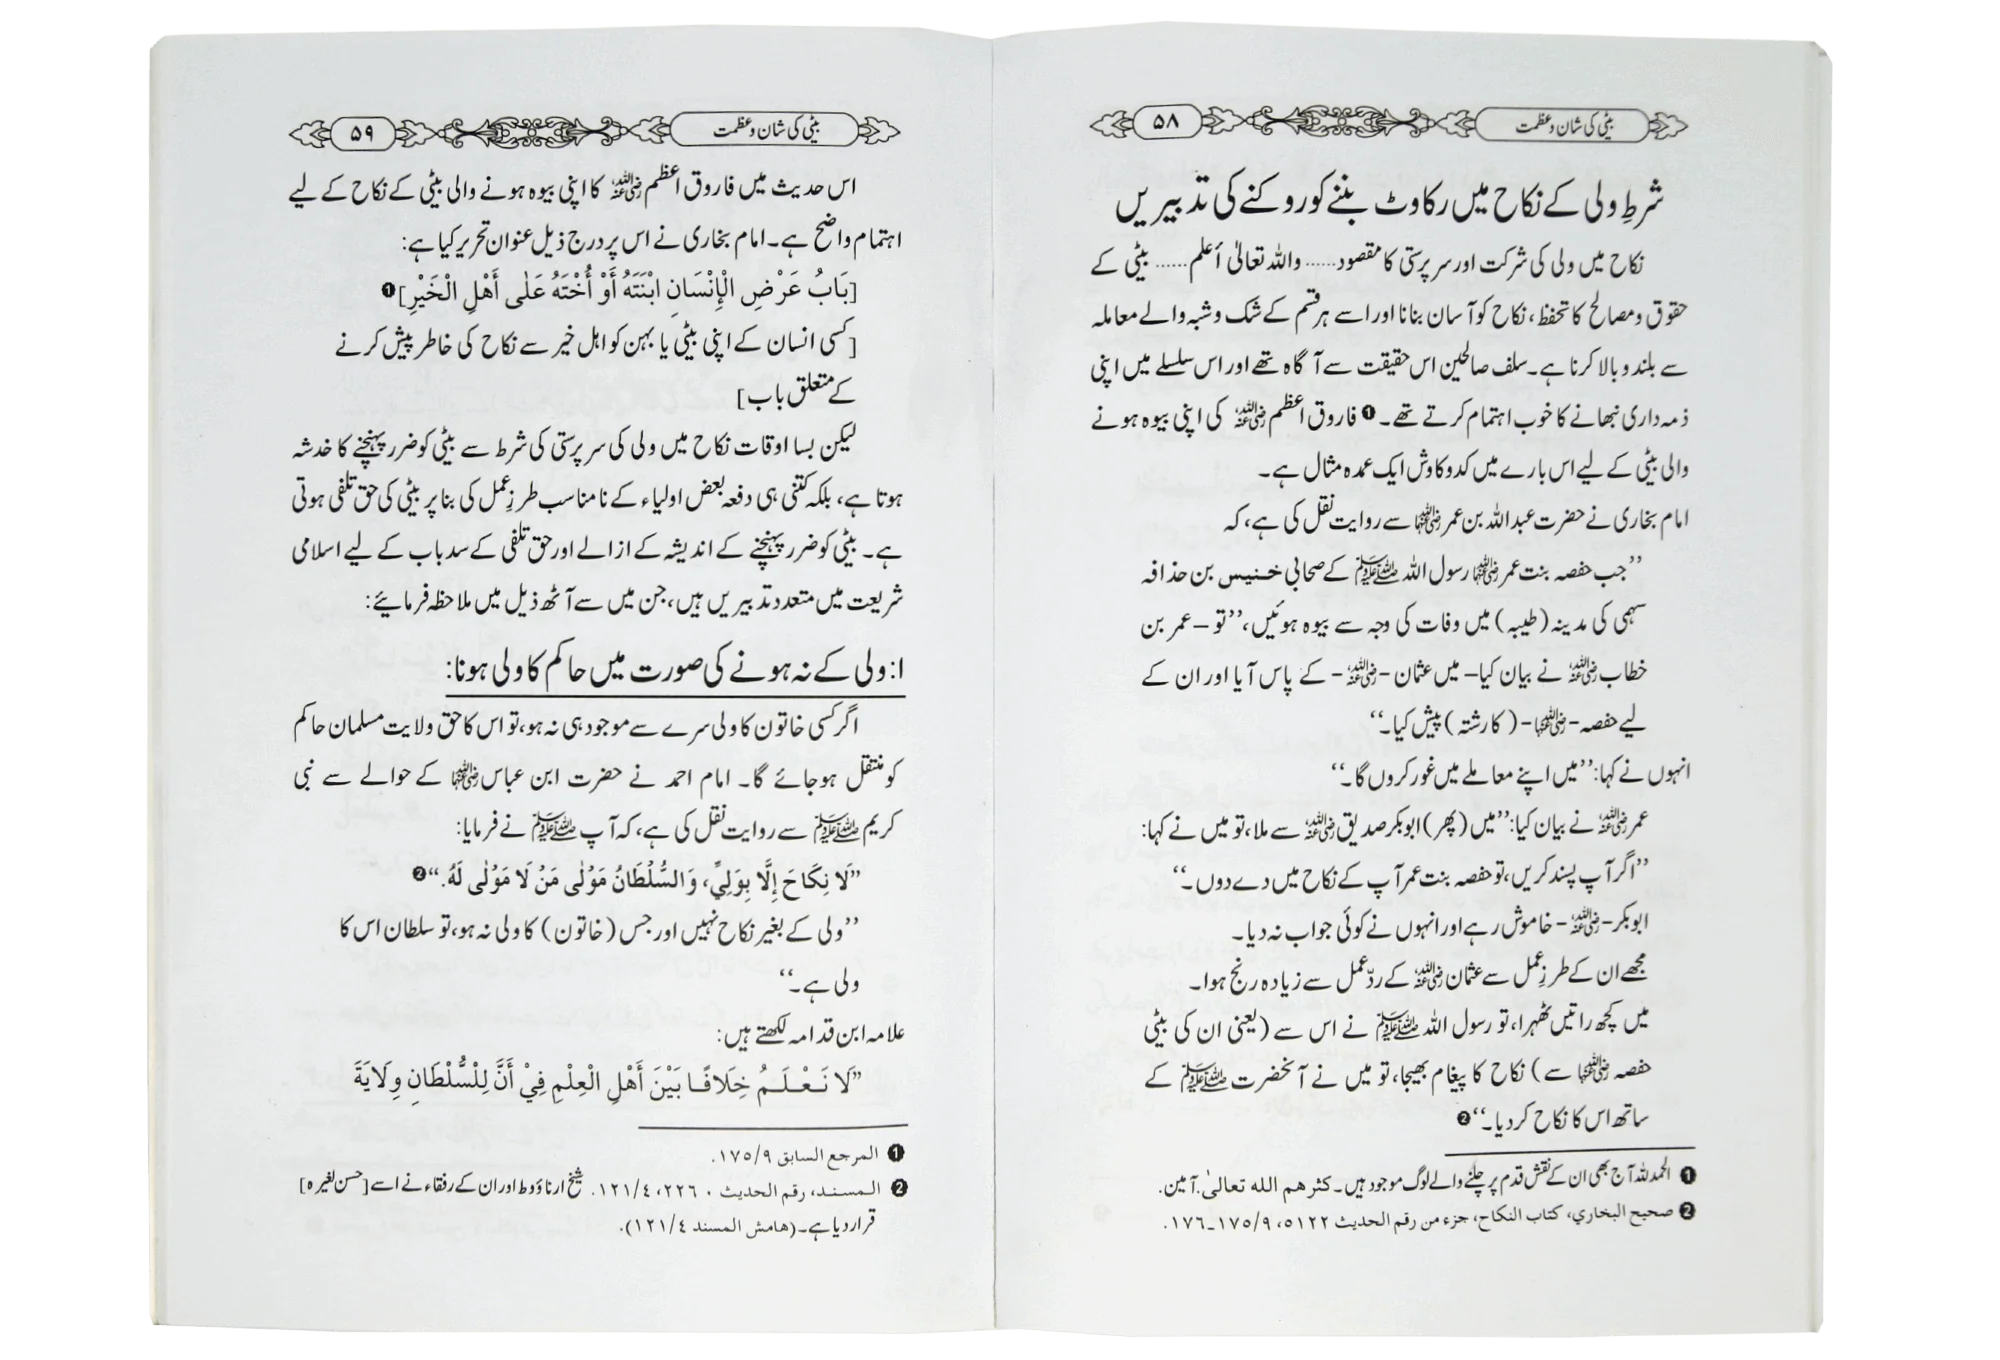 بیٹی کی شان و عظمت
۵۸
شرطِ ولی کے نکاح میں رکاوٹ بننے کو روکنے کی تدبیریں
نکاح میں ولی کی شرکت اور سرپرستی کا مقصود...... واللہ تعالیٰ أعلم ...... بیٹی کے
حقوق ومصالح کا تحفظ، نکاح کو آسان بنانا اور اسے ہر قسم کے شک وشبہ والے معاملہ
سے بلند و بالا کرنا ہے۔ سلف صالحین اس حقیقت سے آگاہ تھے اور اس سلسلے میں اپنی
ذمہ داری نبھانے کا خوب اہتمام کرتے تھے۔❶ فاروق اعظم رضی اللہ عنہ کی اپنی بیوہ ہونے
والی بیٹی کے لیے اس بارے میں کدوکاوش ایک عمدہ مثال ہے۔
امام بخاری نے حضرت عبداللہ بن عمر رضی اللہ عنہما سے روایت نقل کی ہے، کہ
’’جب حفصہ بنت عمر رضی اللہ عنہما رسول اللہ ﷺ کے صحابی خنیس بن حذافہ
سہمی کی مدینہ (طیبہ) میں وفات کی وجہ سے بیوہ ہوئیں،’’تو – عمر بن
خطاب رضی اللہ عنہ نے بیان کیا– میں عثمان - رضی اللہ عنہ - کے پاس آیا اور ان کے
لیے حفصہ - رضی اللہ عنہا - ( کا رشتہ ) پیش کیا۔‘‘
انہوں نے کہا:’’میں اپنے معاملے میں غور کروں گا۔‘‘
عمر رضی اللہ عنہ نے بیان کیا:’’میں (پھر) ابوبکر صدیق رضی اللہ عنہ سے ملا، تو میں نے کہا:
’’اگر آپ پسند کریں، تو حفصہ بنت عمر آپ کے نکاح میں دے دوں۔‘‘
ابوبکر- رضی اللہ عنہ - خاموش رہے اور انہوں نے کوئی جواب نہ دیا۔
مجھے ان کے طرزِ عمل سے عثمان رضی اللہ عنہ کے ردِّ عمل سے زیادہ رنج ہوا۔
میں کچھ راتیں ٹھہرا، تو رسول اللہ ﷺ نے اس سے (یعنی ان کی بیٹی
حفصہ رضی اللہ عنہا سے) نکاح کا پیغام بھیجا، تو میں نے آنحضرت ﷺ کے
ساتھ اس کا نکاح کر دیا۔‘‘❷
❶ الحمدللہ آج بھی ان کے نقش قدم پر چلنے والے لوگ موجود ہیں۔ کثرهم الله تعالیٰ. آمین.
❷ صحيح البخاري، كتاب النكاح، جزء من رقم الحديث ٥١٢٢، ٩/١٧٥-١٧٦.
بیٹی کی شان و عظمت
۵۹
اس حدیث میں فاروق اعظم رضی اللہ عنہ کا اپنی بیوہ ہونے والی بیٹی کے نکاح کے لیے
اہتمام واضح ہے۔ امام بخاری نے اس پر درج ذیل عنوان تحریر کیا ہے:
[بَابُ عَرْضِ الْإِنْسَانِ ابْنَتَهُ أَوْ أُخْتَهُ عَلٰى أَهْلِ الْخَيْرِ]❶
[کسی انسان کے اپنی بیٹی یا بہن کو اہل خیر سے نکاح کی خاطر پیش کرنے
کے متعلق باب]
لیکن بسا اوقات نکاح میں ولی کی سرپرستی کی شرط سے بیٹی کو ضرر پہنچنے کا خدشہ
ہوتا ہے، بلکہ کتنی ہی دفعہ بعض اولیاء کے نامناسب طرزِ عمل کی بنا پر بیٹی کی حق تلفی ہوتی
ہے۔ بیٹی کو ضرر پہنچنے کے اندیشہ کے ازالے اور حق تلفی کے سدباب کے لیے اسلامی
شریعت میں متعدد تدبیریں ہیں، جن میں سے آٹھ ذیل میں ملاحظہ فرمائیے:
۱: ولی کے نہ ہونے کی صورت میں حاکم کا ولی ہونا:
اگر کسی خاتون کا ولی سرے سے موجود ہی نہ ہو، تو اس کا حق ولایت مسلمان حاکم
کو منتقل ہوجائے گا۔ امام احمد نے حضرت ابن عباس رضی اللہ عنہما کے حوالے سے نبی
کریم ﷺ سے روایت نقل کی ہے، کہ آپ ﷺ نے فرمایا:
”لَا نِكَاحَ إِلَّا بِوَلِيٍّ، وَالسُّلْطَانُ مَوْلٰى مَنْ لَا مَوْلٰى لَهُ.“❷
’’ولی کے بغیر نکاح نہیں اور جس (خاتون) کا ولی نہ ہو، تو سلطان اس کا
ولی ہے۔‘‘
علامہ ابن قدامہ لکھتے ہیں:
”لَا نَـعْـلَـمُ خِلَافًـا بَيْنَ أَهْلِ الْعِلْمِ فِيْ أَنَّ لِلْسُّلْطَانِ وِلَايَةَ
❶ المرجع السابق ٩/١٧٥.
❷ المسند، رقم الحديث ٢٢٦٠، ٤/١٢١. شیخ ارناؤوط اور ان کے رفقاء نے اسے [حسن لغيره]
قرار دیا ہے۔ (هامش المسند ٤/١٢١).